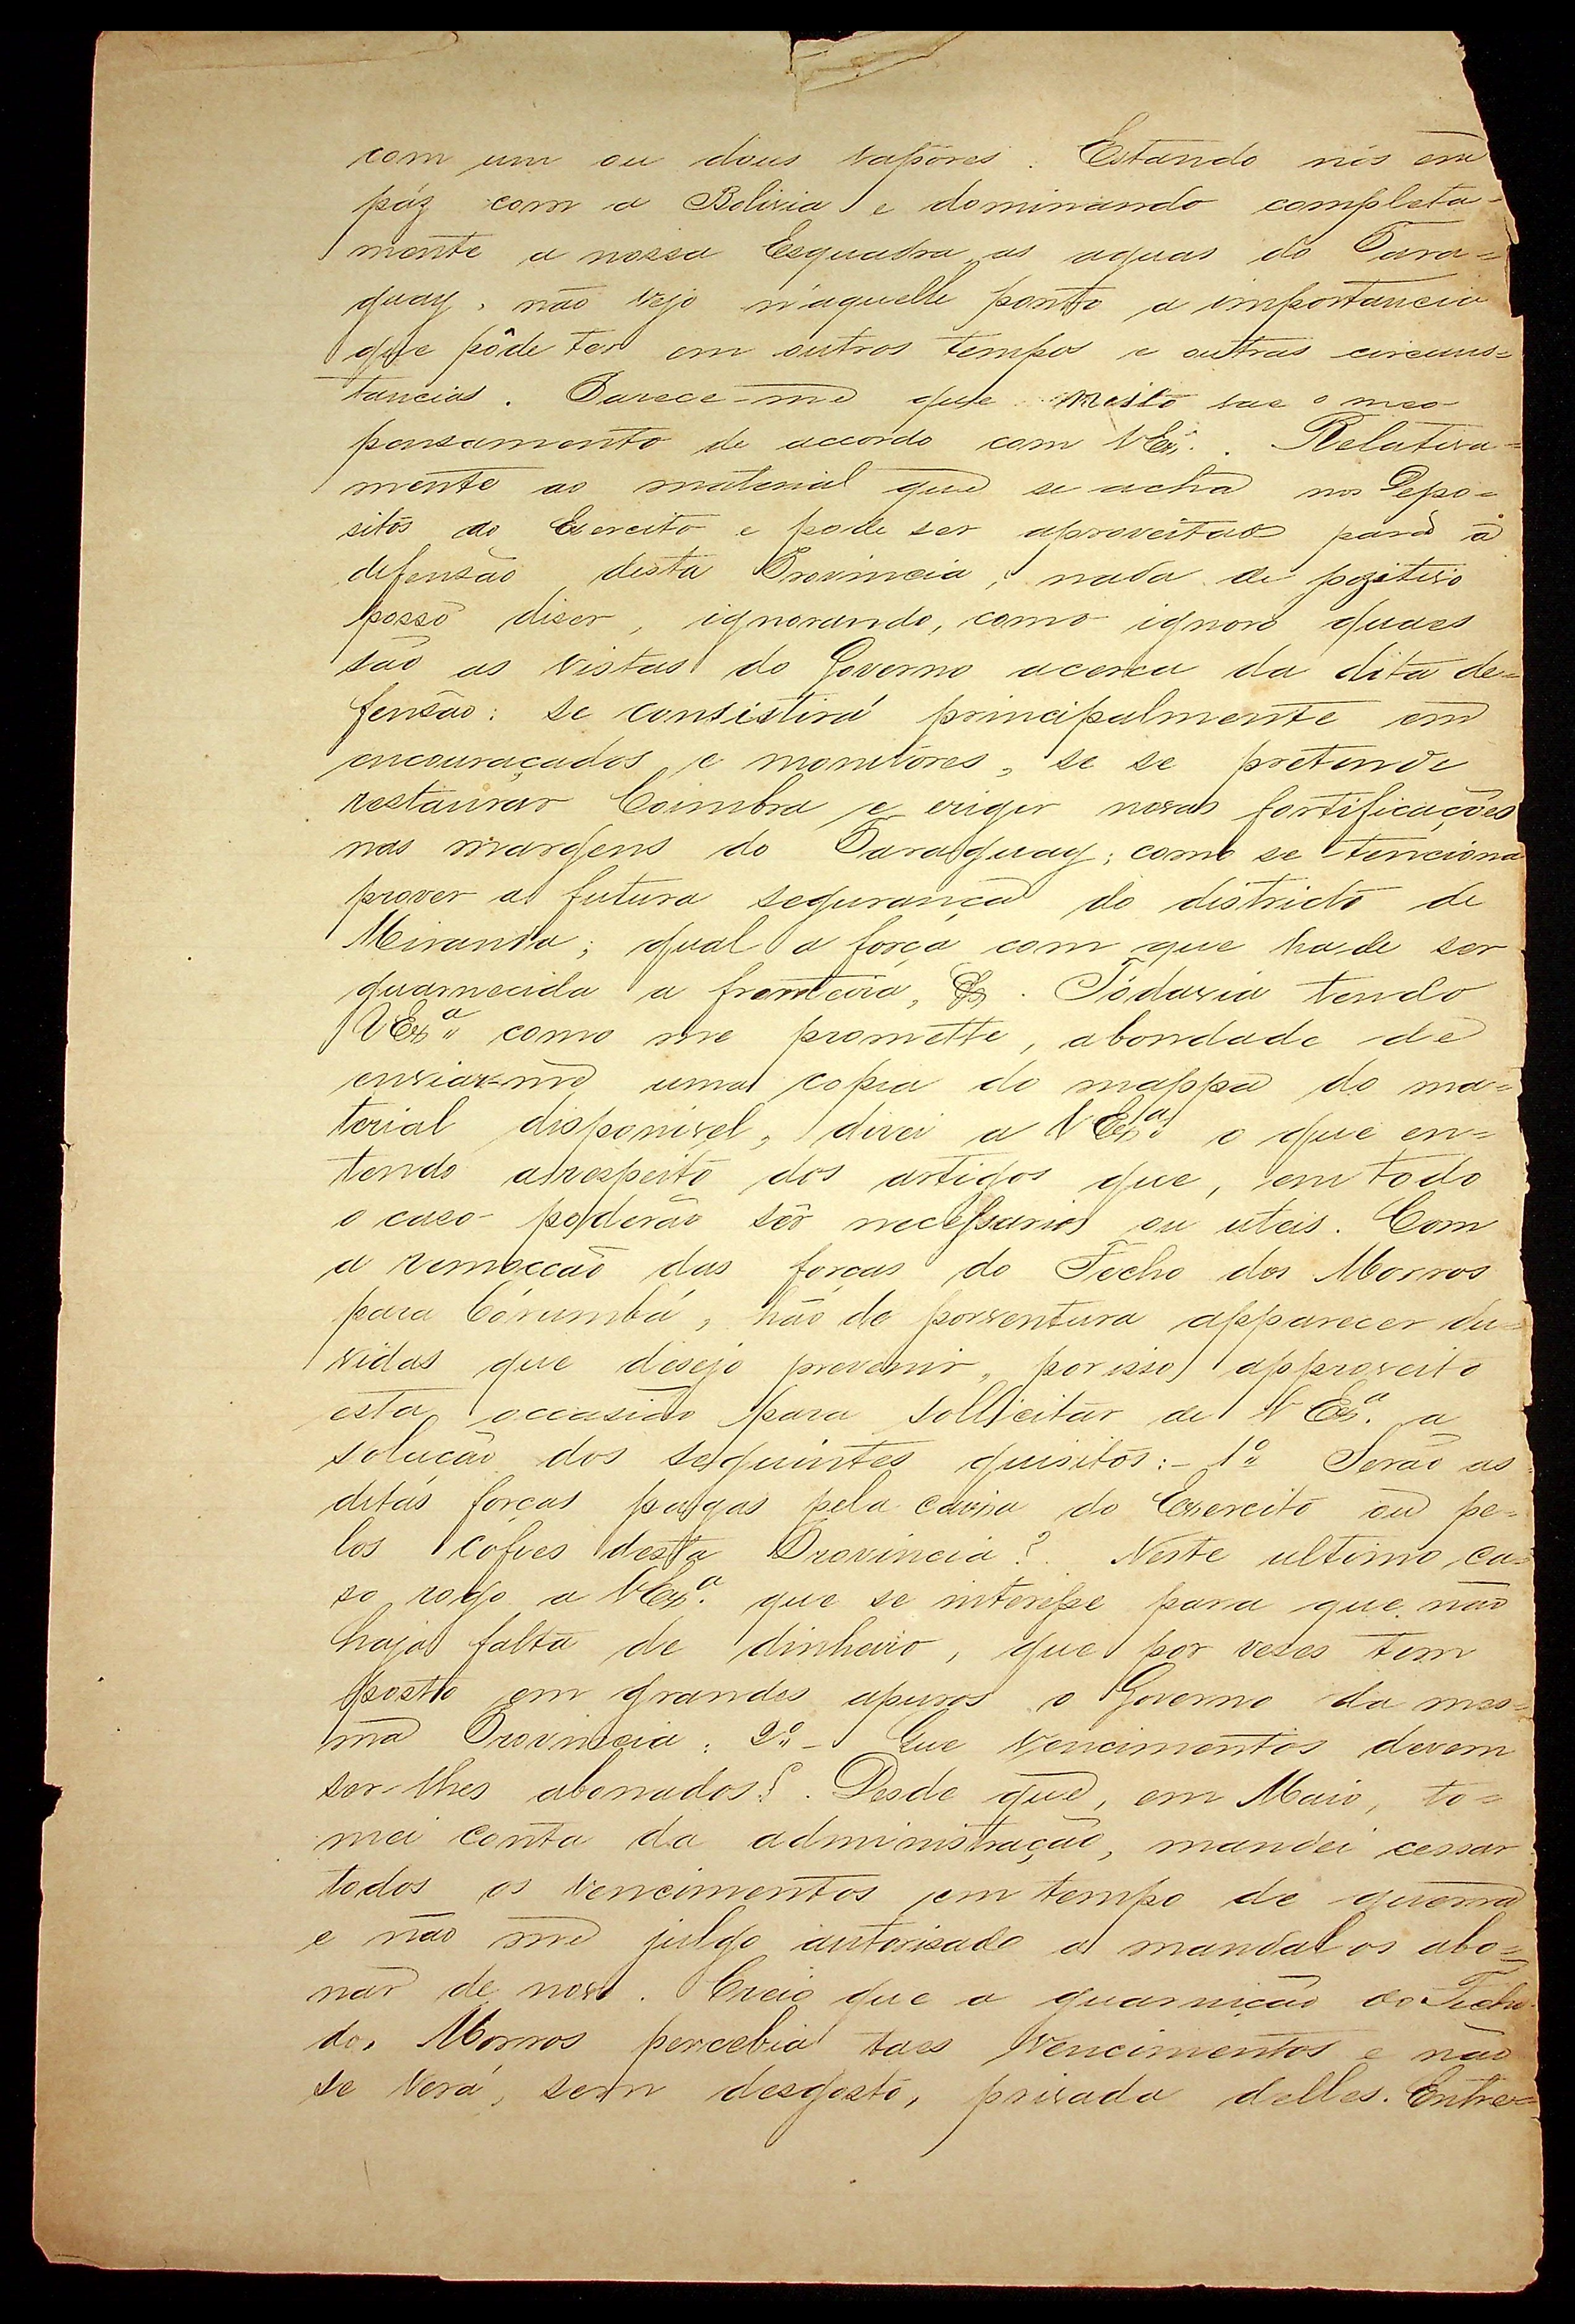 com um ou dous vapores. Estando nós em
páz com a Bolivia e dominando completa-
mente a nossa Esquadra as aguas do Para=
guay, não vejo n'aquelle ponto a importancia
que pôde ter em outros tempos e outras circuns=
tancias. Parece-me que nisto vae o meo
pensamento de accordo com VExª. Relativa=
mente ao material que se acha nos Depo=
sitos do Exercito e pode ser aproveitado para a
defensão desta Provincia, nada de pozitivo
posso diser, ignorando, como ignoro quaes
são as vistas do Governo acerca da dita de=
fensão: se consistirá principalmente em
encouraçados e monitores, se se pretende
restaurar Coimbra e eriger novas fortificações
nas margens do Paraguay; como se tenciona
prover a futura segurança do districto de
Miranda; qual a força com que ha de ser
guarnecida a fronteira, &. Tódavia tendo
VExª como me promette, abondade de
enviar-me uma copia do mappa do ma=
terial disponivel, direi a VExª o que en=
tendo arespeito dos artigos que, em todo
o caso poderão sêr necessarios ou uteis. Com
a remoccão das forças do Fecho dos Morros
para Córumbá, hão de porventura apparecer du=
vidas que desejo prevenir, por isso approveito
esta occasião para sollicitar de VExª. a
solução dos seguintes quisitos:- 1º Serão as
ditas forças pagas pela caixa do Exercito ou pe=
los cofres desta Provincia? Neste ultimo ca=
so rogo a VExª. que se interesse para que não
haja falta de dinheiro, que por veses tem
posto em grandes apuros o Governo da mes=
ma Provincia. 2º- Que vencimentos devem
ser-lhes abonados?. Desde que, em Maio, to=
mei conta da administração, mandei cessar
todos os vencimentos em tempo de guerra
e não me julgo autorisado a mandal os abo=
nar de novo. Creio que a guarnição do Fecho
dos Morros percebia taes vencimentos e não
se verá, sem desgosto, privada delles. Entre=